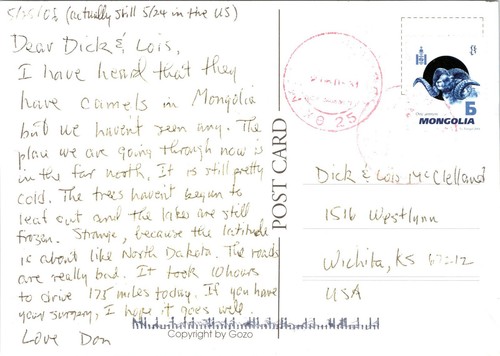 5/25/05 (actually still 5/24 in the US)
Dear Dick & Lois,
I have heard that they
have camels in Mongolia
but we haven't seen any. The
place we are going through now is
in the far north. It is still pretty
cold. The trees haven't begun to
leaf out and the lakes are still
frozen. Strange, because the latitude
is about like North Dakota. The roads
are really bad. It took 10 hours
to drive 175 miles today. If you have
your surgery, I hope it goes well.
Love Don
POST CARD
Copyright by Gozo
6 25
Б
MONGOLIA
Dick & Lois McClelland
1516 Westlynn
Wichita, KS 67212
USA